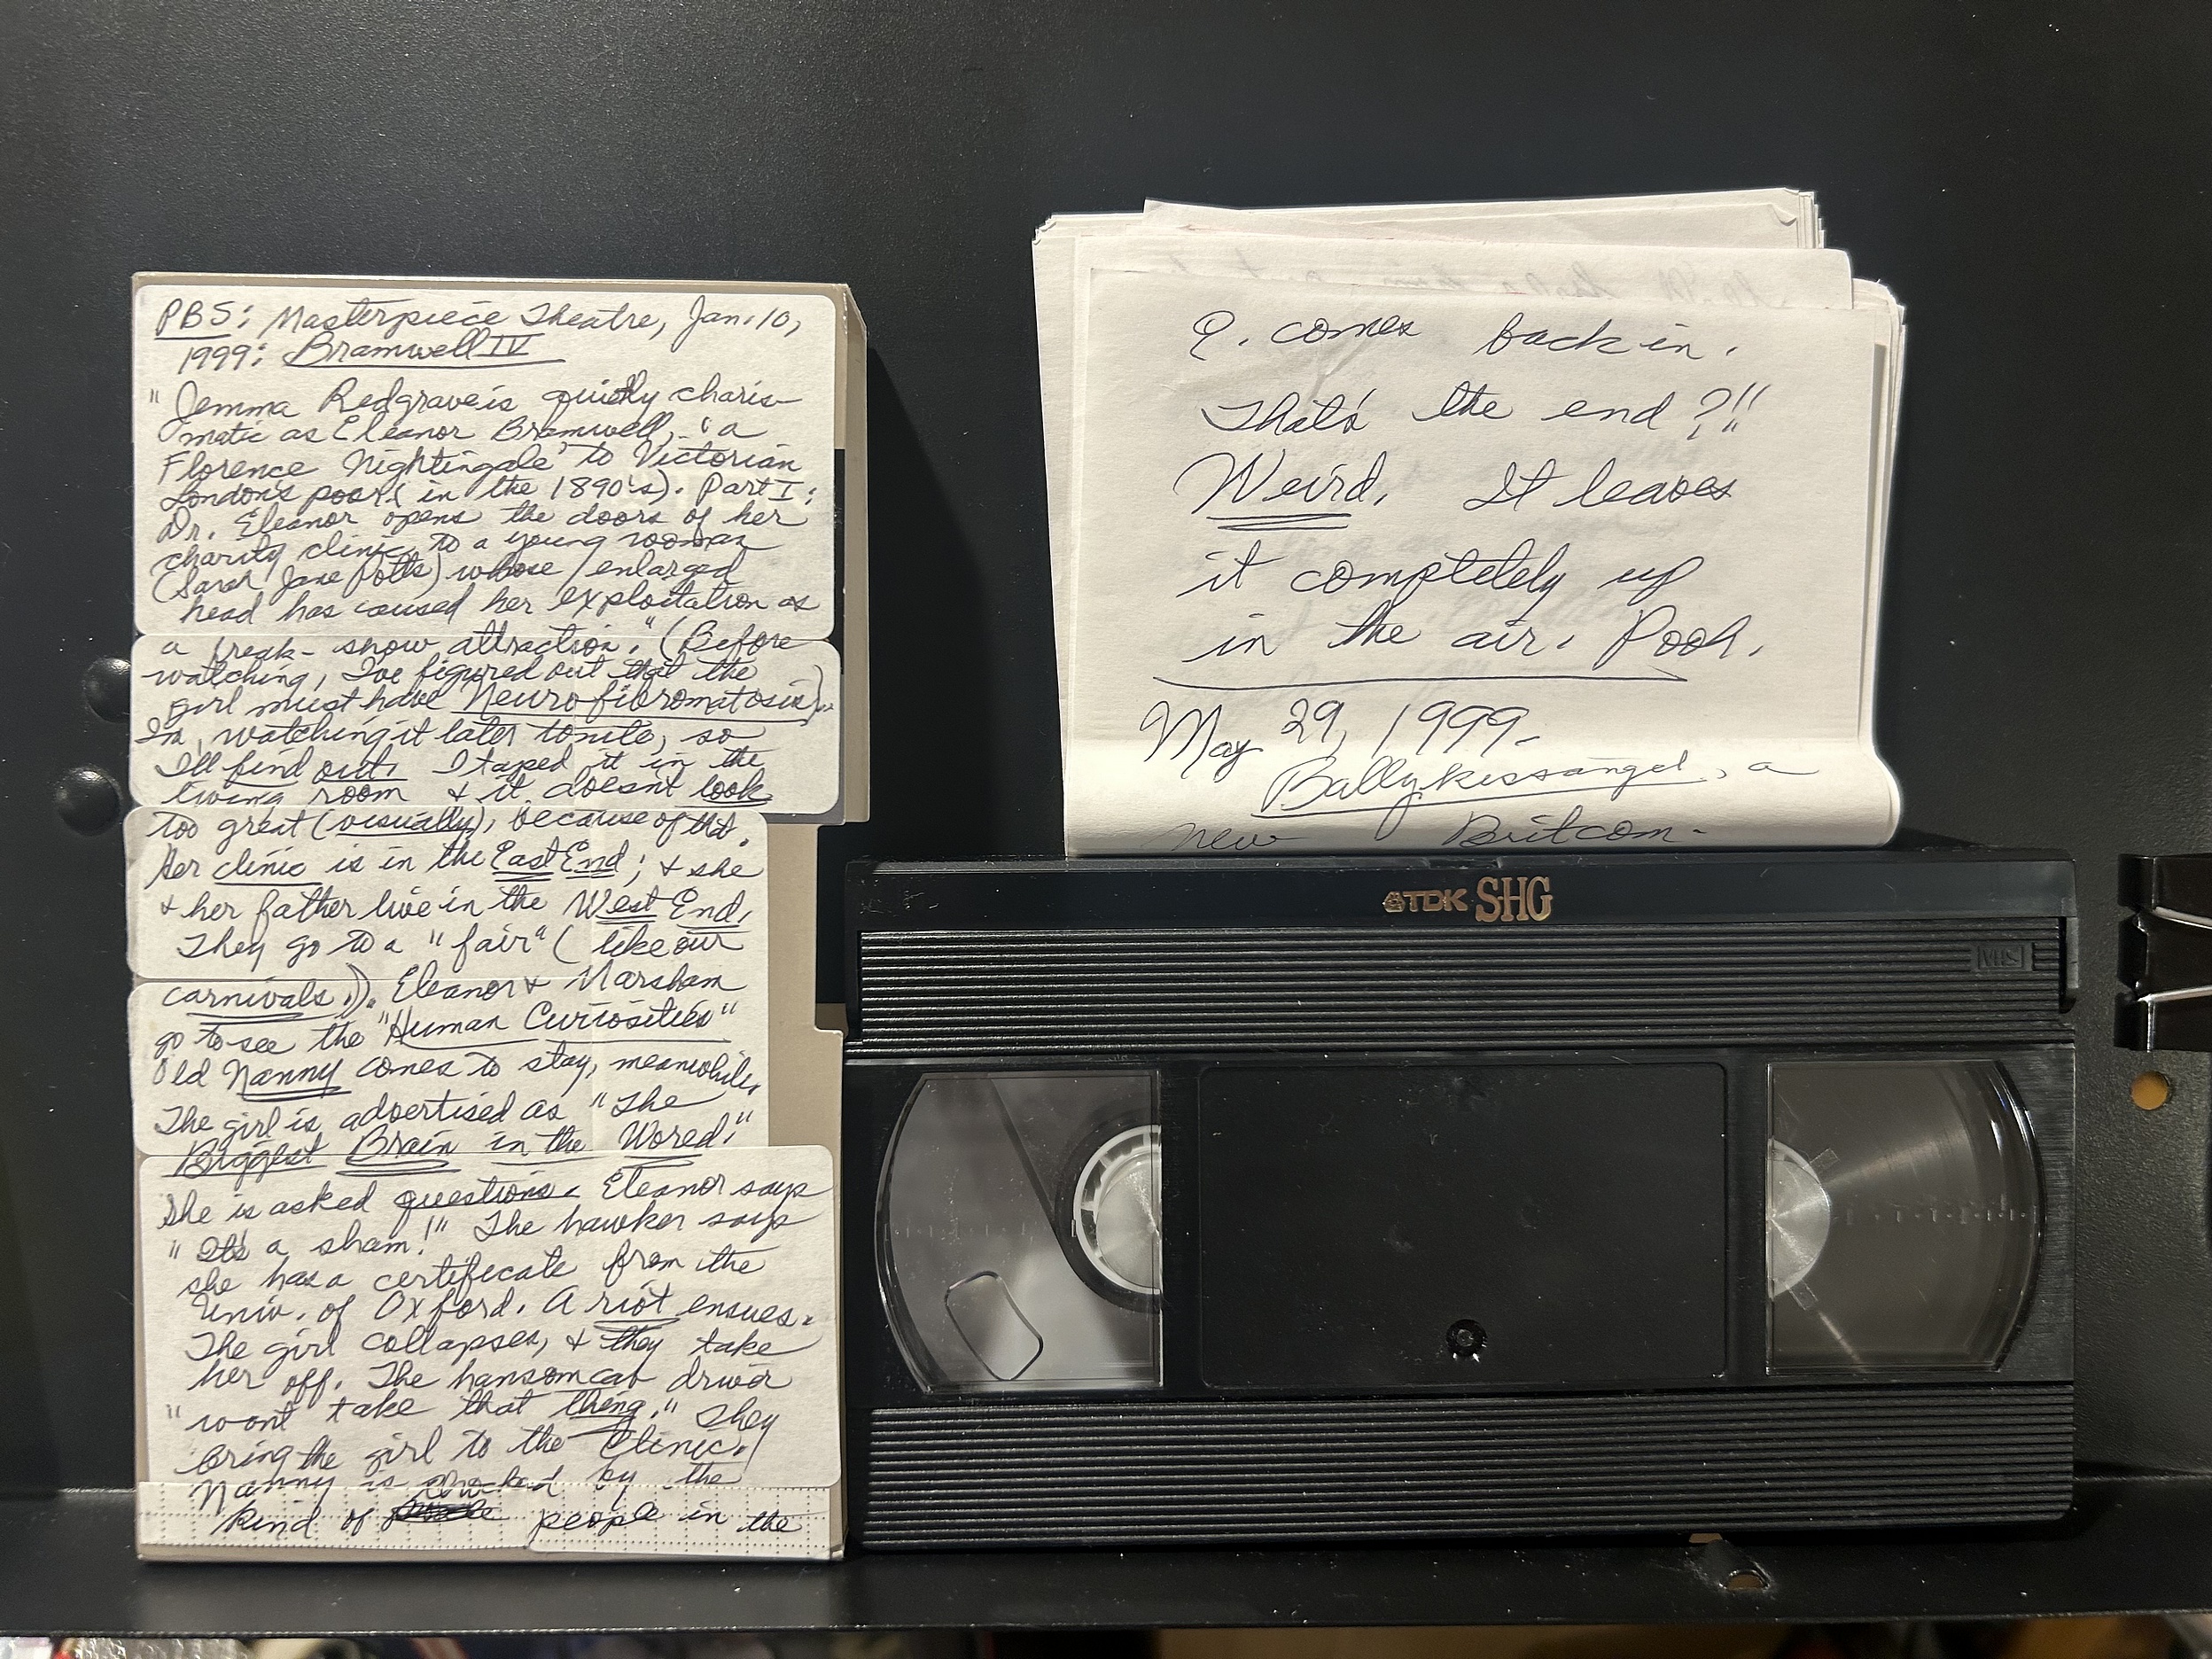 PBS: Masterpiece Theatre, Jan. 10,
1999: Bramwell IV
"Jemma Redgrave is quietly charis-
matic as Eleanor Bramwell, 'a
Florence Nightingale' to Victorian
London's poor (in the 1890's). Part I:
Dr. Eleanor opens the doors of her
charity clinic to a young woman
(Sarah Jane Potts) whose enlarged
head has caused her exploitation as
a freak-show attraction." (Before
watching, I've figured out that the
girl must have Neurofibromatosis).
I'm watching it later tonite, so
I'll find out. I taped it in the
living room & it doesn't look
too great (visually), because of tht.
Her clinic is in the East End; & she
& her father live in the West End.
They go to a "fair" (like our
carnivals.)). Eleanor & Marsham
go to see the "Human Curiosities"
Old Nanny comes to stay, meanwhile.
The girl is advertised as "The
Biggest Brain in the Wored."
She is asked questions. Eleanor says
"It's a sham!" The hawker says
she has a certificate from the
Univ. of Oxford. A riot ensues.
The girl collapses, & they take
her off. The hansom cab driver
"won't take that thing." They
bring the girl to the Clinic.
Nanny is shocked by the
kind of people in the
E. comes back in.
That's the end?!!
Weird. It leaves
it completely up
in the air. Pooh.
May 29, 1999-
Ballykissangel, a
new Britcom-
TDK SHG
VHS